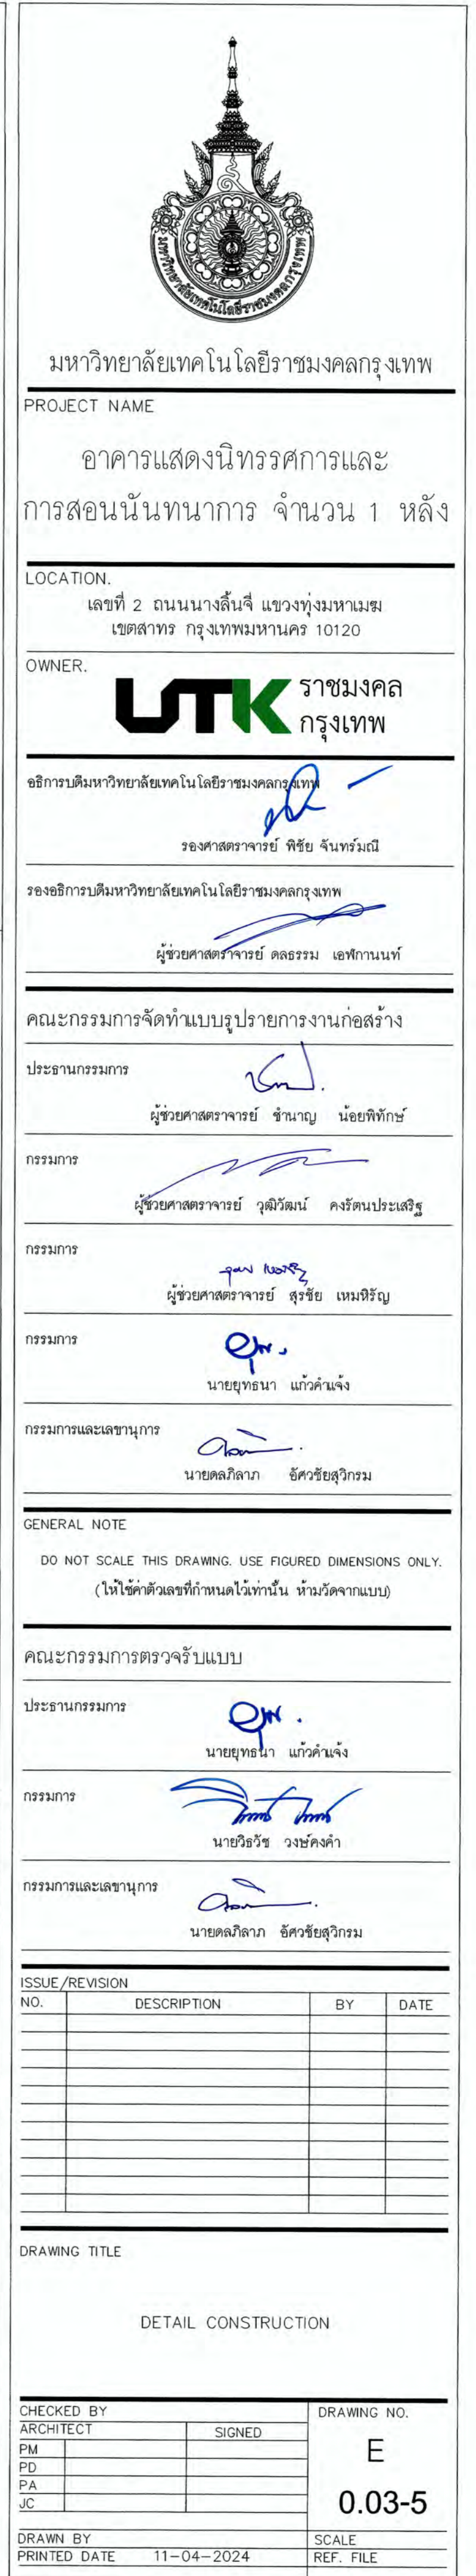 มหาวิทยาลัยเทคโนโลยีราชมงคลกรุงเทพ
มหาวิทยาลัยเทคโนโลยีราชมงคลกรุงเทพ
PROJECT NAME
อาคารแสดงนิทรรศการและ
การสอนนันทนาการ จำนวน 1 หลัง
LOCATION.
เลขที่ 2 ถนนนางลิ้นจี่ แขวงทุ่งมหาเมฆ
เขตสาทร กรุงเทพมหานคร 10120
OWNER.
UTK ราชมงคล
กรุงเทพ
อธิการบดีมหาวิทยาลัยเทคโนโลยีราชมงคลกรุงเทพ
รองศาสตราจารย์ พิชัย จันทร์มณี
รองอธิการบดีมหาวิทยาลัยเทคโนโลยีราชมงคลกรุงเทพ
ผู้ช่วยศาสตราจารย์ ดลธรรม เอฬกานนท์
คณะกรรมการจัดทำแบบรูปรายการงานก่อสร้าง
ประธานกรรมการ
ผู้ช่วยศาสตราจารย์ ชำนาญ น้อยพิทักษ์
กรรมการ
ผู้ช่วยศาสตราจารย์ วุฒิวัฒน์ คงรัตนประเสริฐ
กรรมการ
ผู้ช่วยศาสตราจารย์ สุรชัย เหมหิรัญ
กรรมการ
นายยุทธนา แก้วคำแจ้ง
กรรมการและเลขานุการ
นายดลภิลาภ อัศวชัยสุวิกรม
GENERAL NOTE
DO NOT SCALE THIS DRAWING. USE FIGURED DIMENSIONS ONLY.
(ให้ใช้ค่าตัวเลขที่กำหนดไว้เท่านั้น ห้ามวัดจากแบบ)
คณะกรรมการตรวจรับแบบ
ประธานกรรมการ
นายยุทธนา แก้วคำแจ้ง
กรรมการ
นายวิธวัช วงษ์คงคำ
กรรมการและเลขานุการ
นายดลภิลาภ อัศวชัยสุวิกรม
ISSUE/REVISION
NO. DESCRIPTION BY DATE
DRAWING TITLE
DETAIL CONSTRUCTION
CHECKED BY DRAWING NO.
ARCHITECT SIGNED
PM
PD
PA
JC
E
0.03-5
DRAWN BY SCALE
PRINTED DATE 11-04-2024 REF. FILE